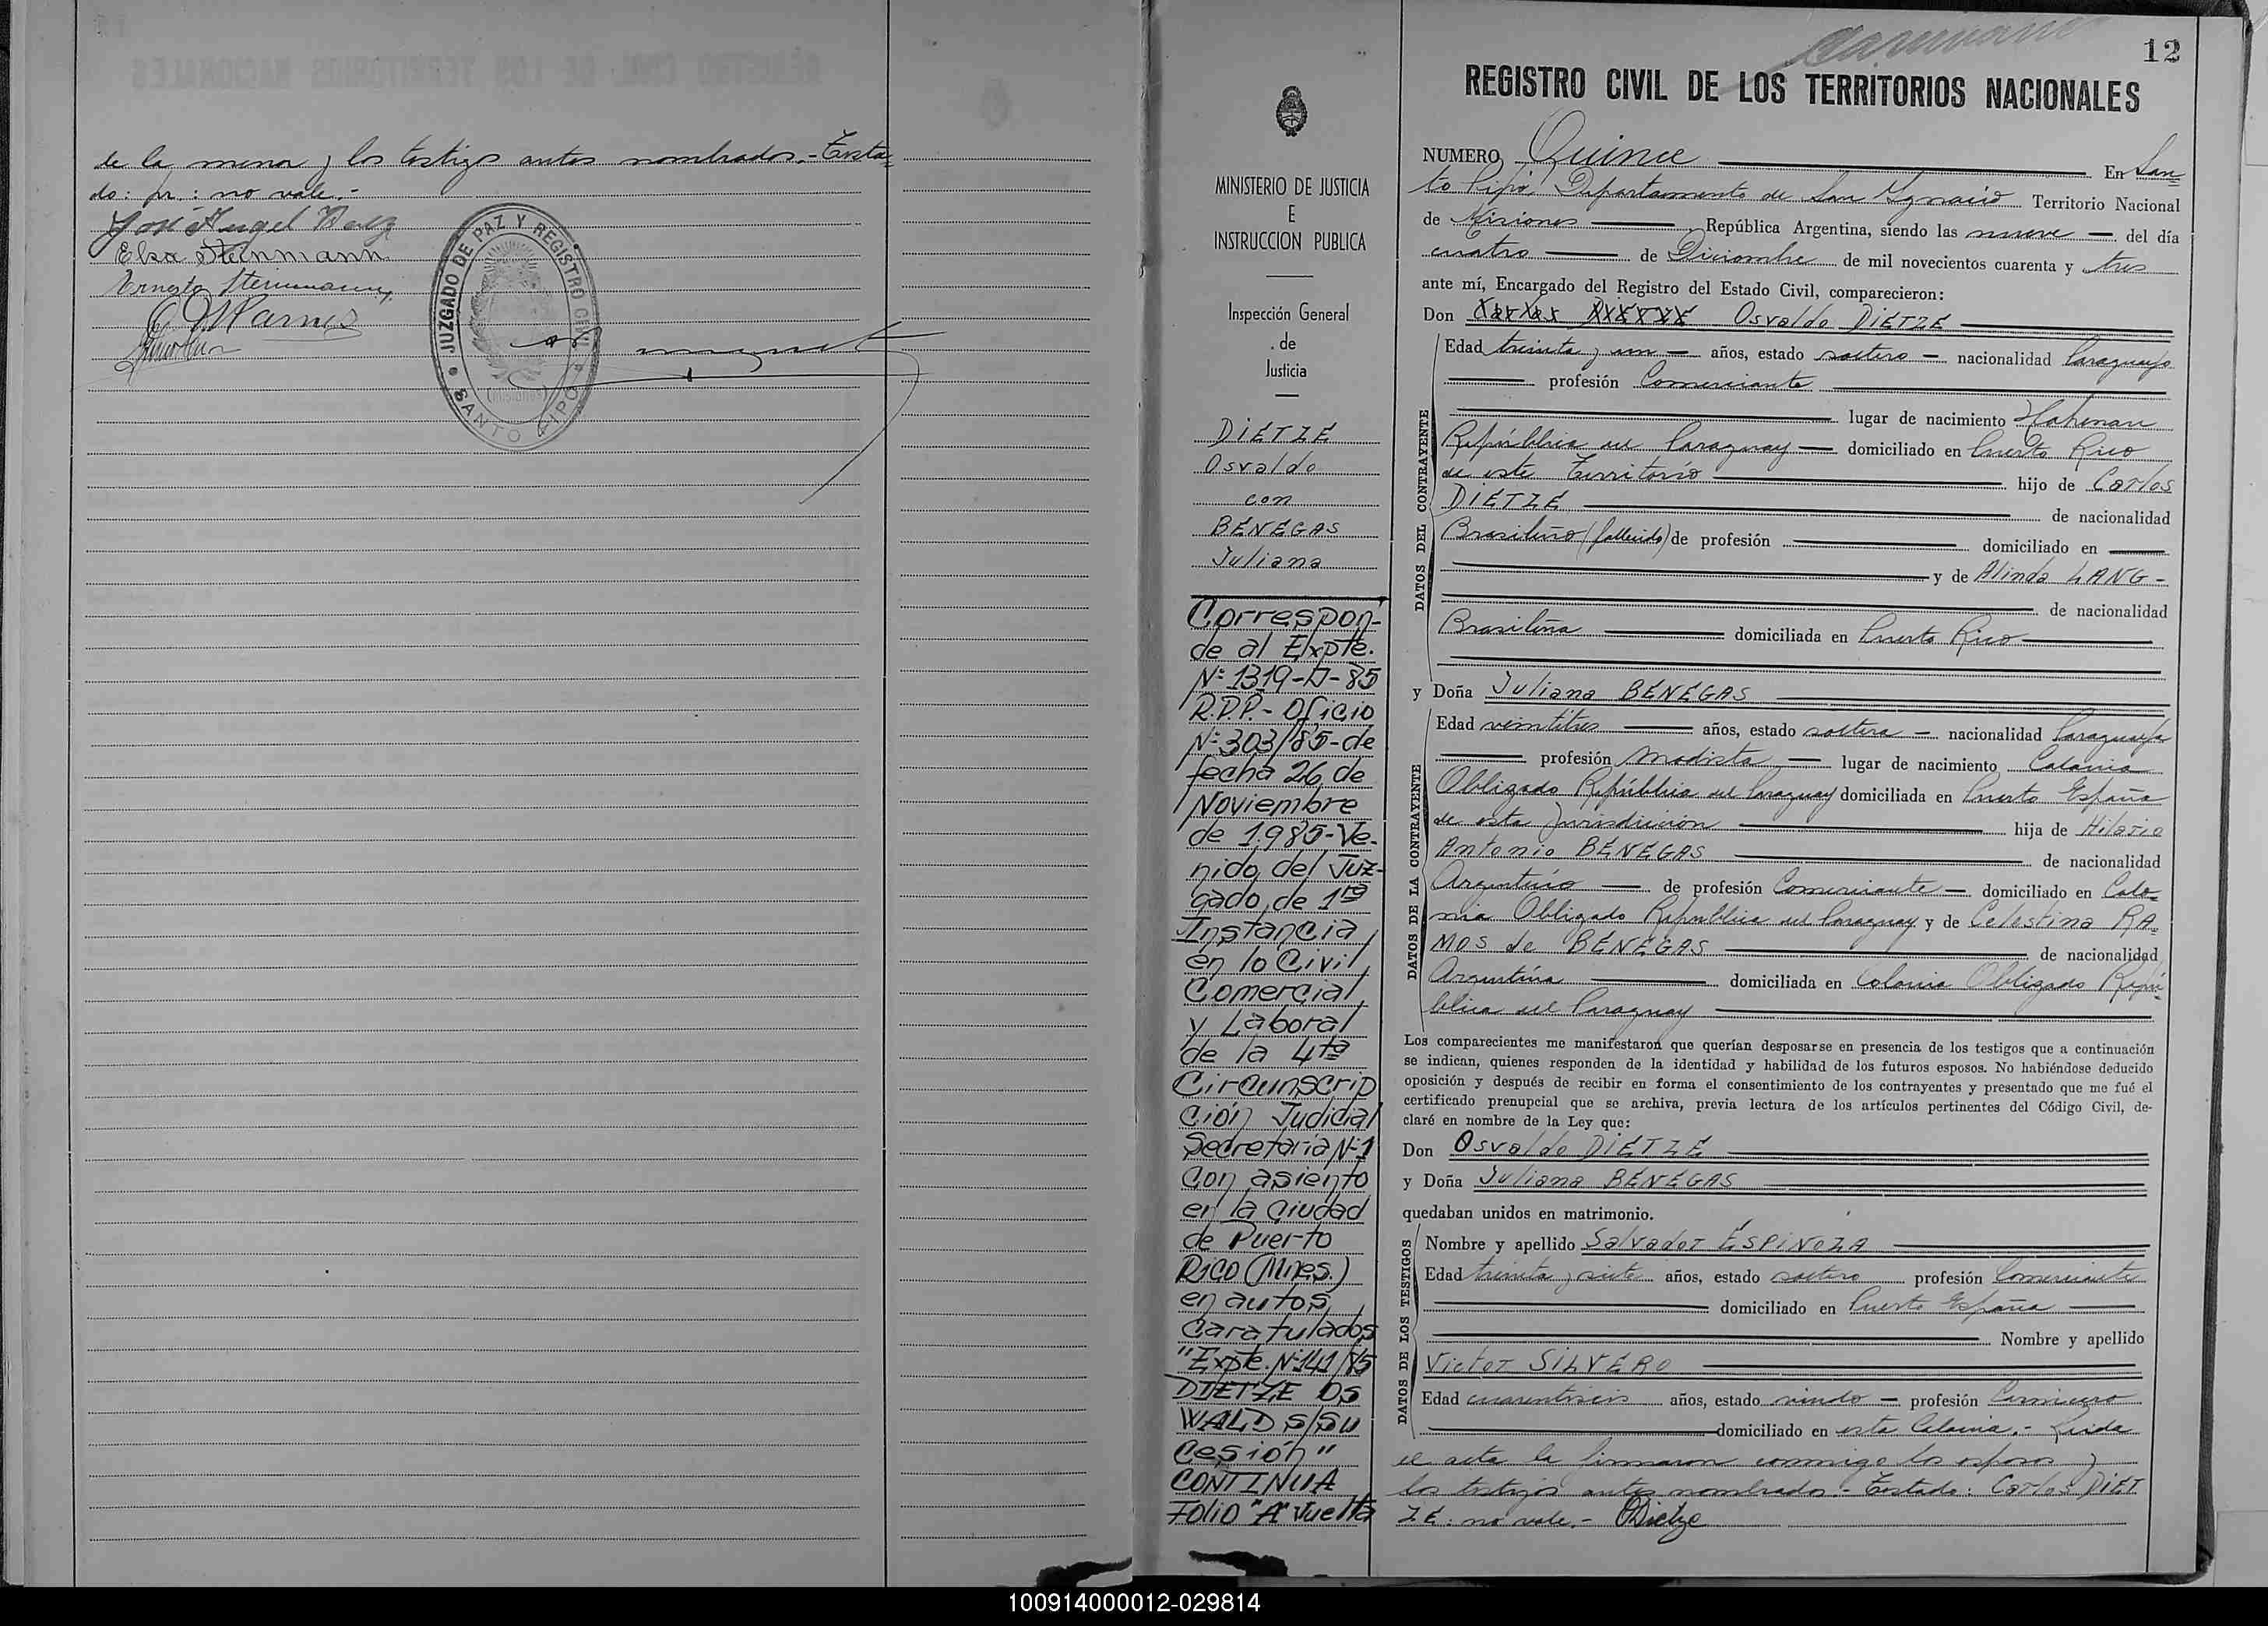 de la menor y los testigos antes nombrados.- Testa=
do: pr.: no vale.-
José Angel
Elsa Steinmann
Ernesto Steinmann
JUZGADO DE PAZ Y REGISTRO CIVIL
SANTO PIPO
(MISIONES)
MINISTERIO DE JUSTICIA
E
INSTRUCCION PUBLICA
Inspección General
de
Justicia
DIETZE
Osvaldo
con
BENEGAS
Juliana
Correspon-
de al Expte.
Nº 1319-D-85
R.P.P.- Oficio
Nº 303/85-de
fecha 26 de
Noviembre
de 1.985-Ve-
nido del Juz-
gado de 1ra
Instancia
en lo Civil,
Comercial
y Laboral
de la 4ta
Circunscrip
ción Judicial
Secretaría Nº1
con asiento
en la ciudad
de Puerto
Rico (Mnes.)
en autos
Caratulados
"Expte. Nº141/85
DIETZE OS
WALD S/SU
Cesión"
CONTINUA
Folio "A" Vuelta
12
REGISTRO CIVIL DE LOS TERRITORIOS NACIONALES
NUMERO Quince En San=
to Pipó Departamento de San Ignacio Territorio Nacional
de Misiones República Argentina, siendo las nueve del día
cuatro de Diciembre de mil novecientos cuarenta y tres
ante mí, Encargado del Registro del Estado Civil, comparecieron:
Don Osvaldo DIETZE
Edad treinta y un años, estado soltero nacionalidad Paraguayo
profesión Comerciante
lugar de nacimiento Hohenau
República del Paraguay domiciliado en Puerto Rico
de este Territorio hijo de Carlos
DIETZE de nacionalidad
Brasileño (fallecido) de profesión domiciliado en
y de Alinda LANG -
de nacionalidad
Brasileña domiciliada en Puerto Rico
y Doña Juliana BENEGAS
Edad veintitres años, estado soltera nacionalidad Paraguaya
profesión Modista lugar de nacimiento Colonia
Obligado República del Paraguay domiciliada en Puerto España
de esta Jurisdicción hija de Hilario
Antonio BENEGAS de nacionalidad
Argentino de profesión Comerciante domiciliado en Colo=
nia Obligado República del Paraguay y de Celestina RA=
MOS de BENEGAS de nacionalidad
Argentina domiciliada en Colonia Obligado Repú=
blica del Paraguay
Los comparecientes me manifestaron que querían desposarse en presencia de los testigos que a continuación
se indican, quienes responden de la identidad y habilidad de los futuros esposos. No habiéndose deducido
oposición y después de recibir en forma el consentimiento de los contrayentes y presentado que me fué el
certificado prenupcial que se archiva, previa lectura de los artículos pertinentes del Código Civil, de-
claré en nombre de la Ley que:
Don Osvaldo DIETZE
y Doña Juliana BENEGAS
quedaban unidos en matrimonio.
Nombre y apellido Salvador ESPINOZA
Edad treinta y siete años, estado soltero profesión Comerciante
domiciliado en Puerto España
Nombre y apellido
Victor SILVERO
Edad cuarentiseis años, estado viudo profesión
domiciliado en esta Colonia.- Leida
el acta la firmaron conmigo los esposos y
los testigos antes nombrados.- Testado: Carlos DIET
ZE: no vale.- ODietze
DATOS DEL CONTRAYENTE
DATOS DE LA CONTRAYENTE
DATOS DE LOS TESTIGOS
100914000012-029814